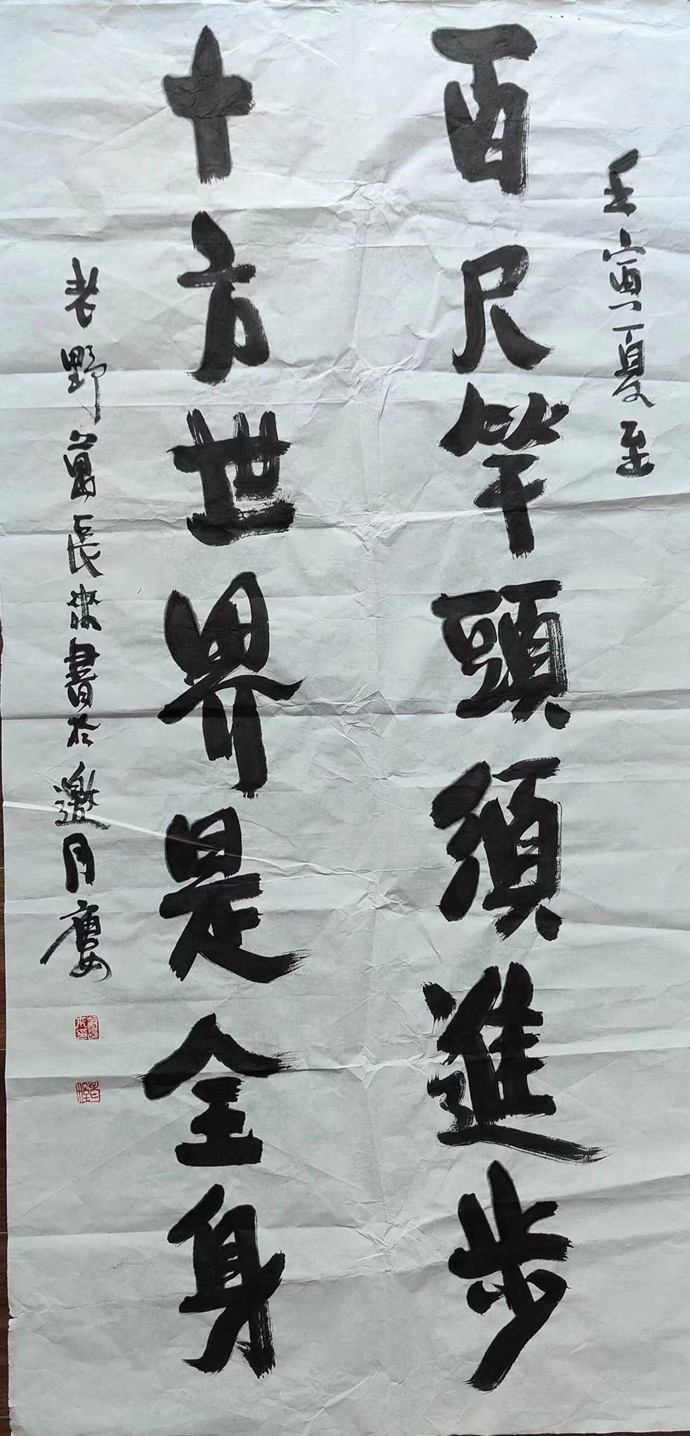 壬寅夏至
百尺竿頭須進步
十方世界是全身
老野葛長來書於邀月廔